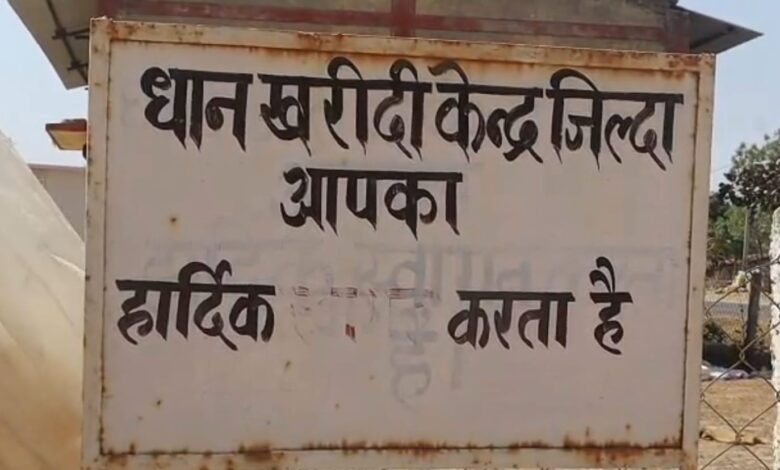 धान खरीदी केन्द्र जिल्दा
आपका
हार्दिक करता है